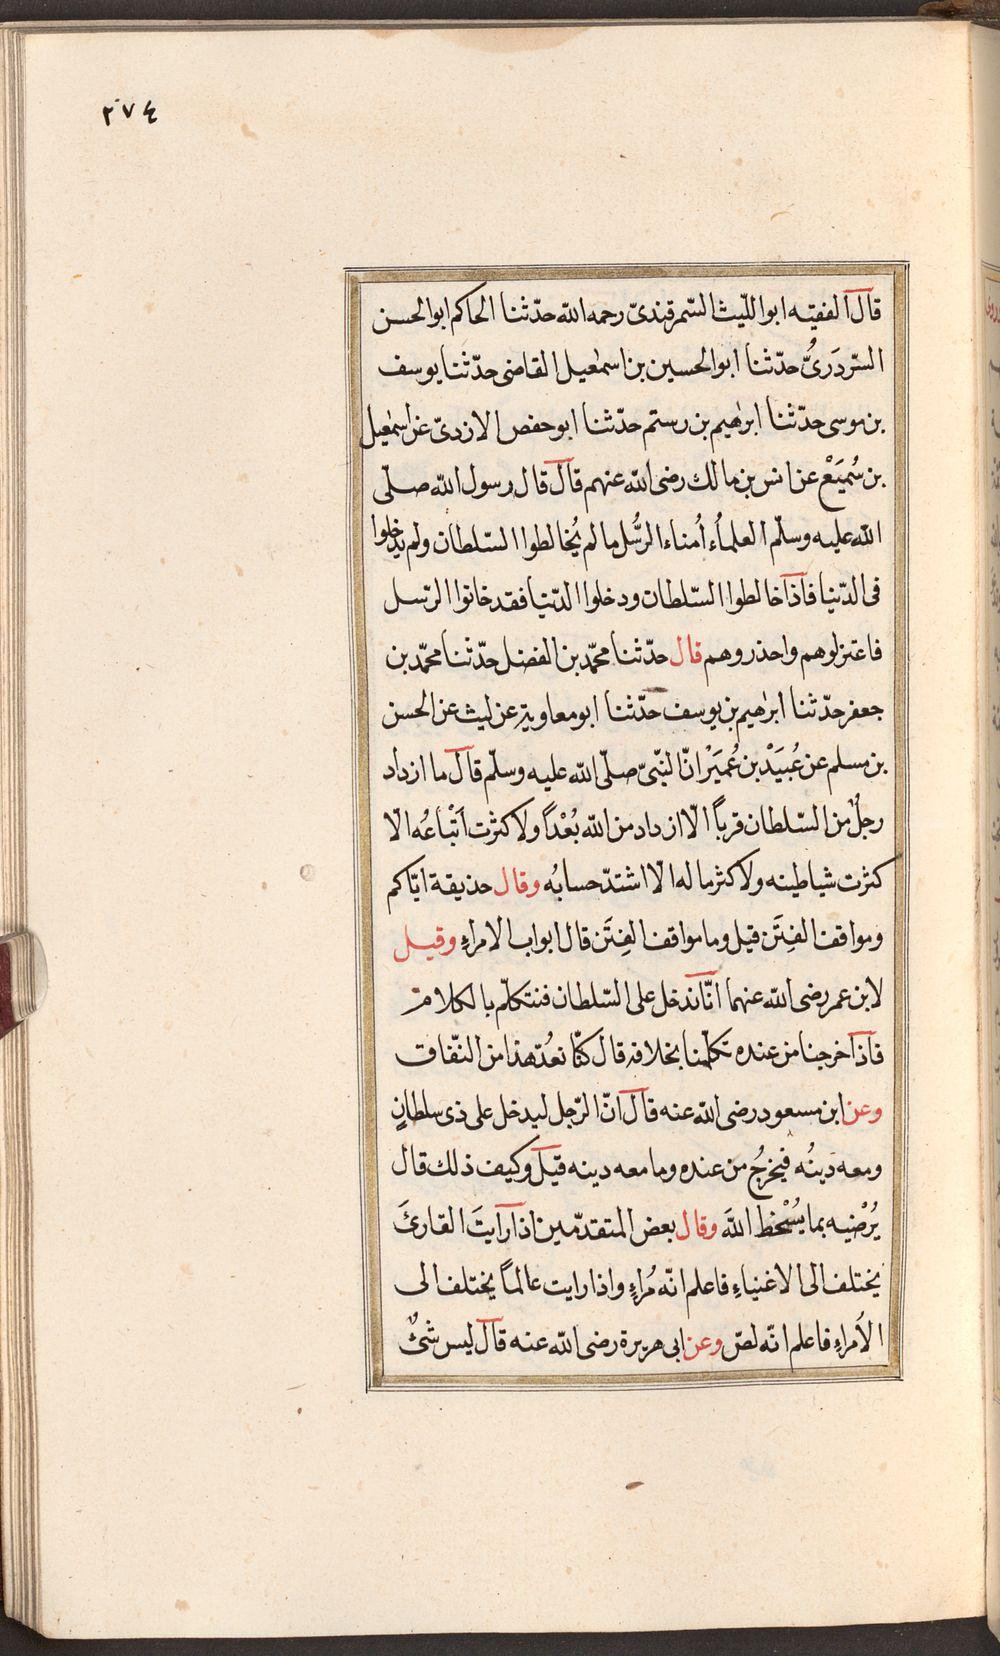 ٢٧٤
قال الفقيه ابو الليث السّمرقندىّ رحمه الله حدّثنا الحاكم ابو الحسن
السّردَرىُّ حدّثنا ابو الحسين بن اسمٰعيل القاضى حدّثنا يوسف
بن موسى حدّثنا ابرٰهيم بن رستم حدّثنا ابو حفص الازدىّ عن اسمٰعيل
بن سُمَيَعْ عن انس بن مالك رضى الله عنهم قال قال رسول الله صلّى
الله عليه وسلّم العلماُء اُمناء الرُّسُل ما لم يُخالطوا السّلطان ولم يدخلوا
فى الدّنيا فاذا خالطوا السّلطان ودخلوا الدّنيا فقد خانوا الرّسل
فاعتزلوهم واحذروهم قال حدّثنا محمّد بن الفضل حدّثنا محمّد بن
جعفر حدّثنا ابرٰهيم بن يوسف حدّثنا ابو معاوية عن ليث عن الحسن
بن مسلم عن عُبَيَدْ بن عُمَيَرْ انّ النبّىّ صلّى الله عليه وسلّم قال ما ازداد
رجلٌ من السّلطان قرباً الّا ازداد من الله بُعْداً ولا كثرت اَتْباعُه الّا
كثرت شياطينه ولا كثر ماله الّا اشتدّ حسابُه وقال حذيقة ايّاكم
ومواقف الفِتَن قيل وما مواقف الفِتَن قال ابواب الامراءِ وقيل
لابن عمر رضى الله عنهما انّا ندخل على السّلطان فنتكلّم بالكلام
فاذا خرجنا من عنده تكلّمنا بخلافه قال كنّا نعُدّ هذا من النّفاق
وعن ابن مسعود رضى الله عنه قال انّ الرّجل ليدخل على ذى سلطانٍ
ومعه دينُه فيخرُج من عنده وما معه دينه قيل وكيف ذلك قال
يُرْضيه بما يُسْخط اللهَ وقال بعض المتقدّمين اذا رايتَ القارئَ
يختلف الى الاغنياءِ فاعلم انّه مُراءٍ واذا رايت عالماً يختلف الى
الاُمراءِ فاعلم انّه لصّ وعن ابى هريرة رضى الله عنه قال ليس شىٌ